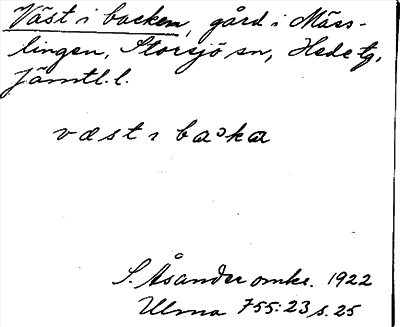 Väst i backen, gård i Mäss-
lingen, Storsjö sn, Hede tg,
Jämtl. l.
væst ı baɔka
S. Åsander omkr. 1922
Ulma 755:23 s. 25